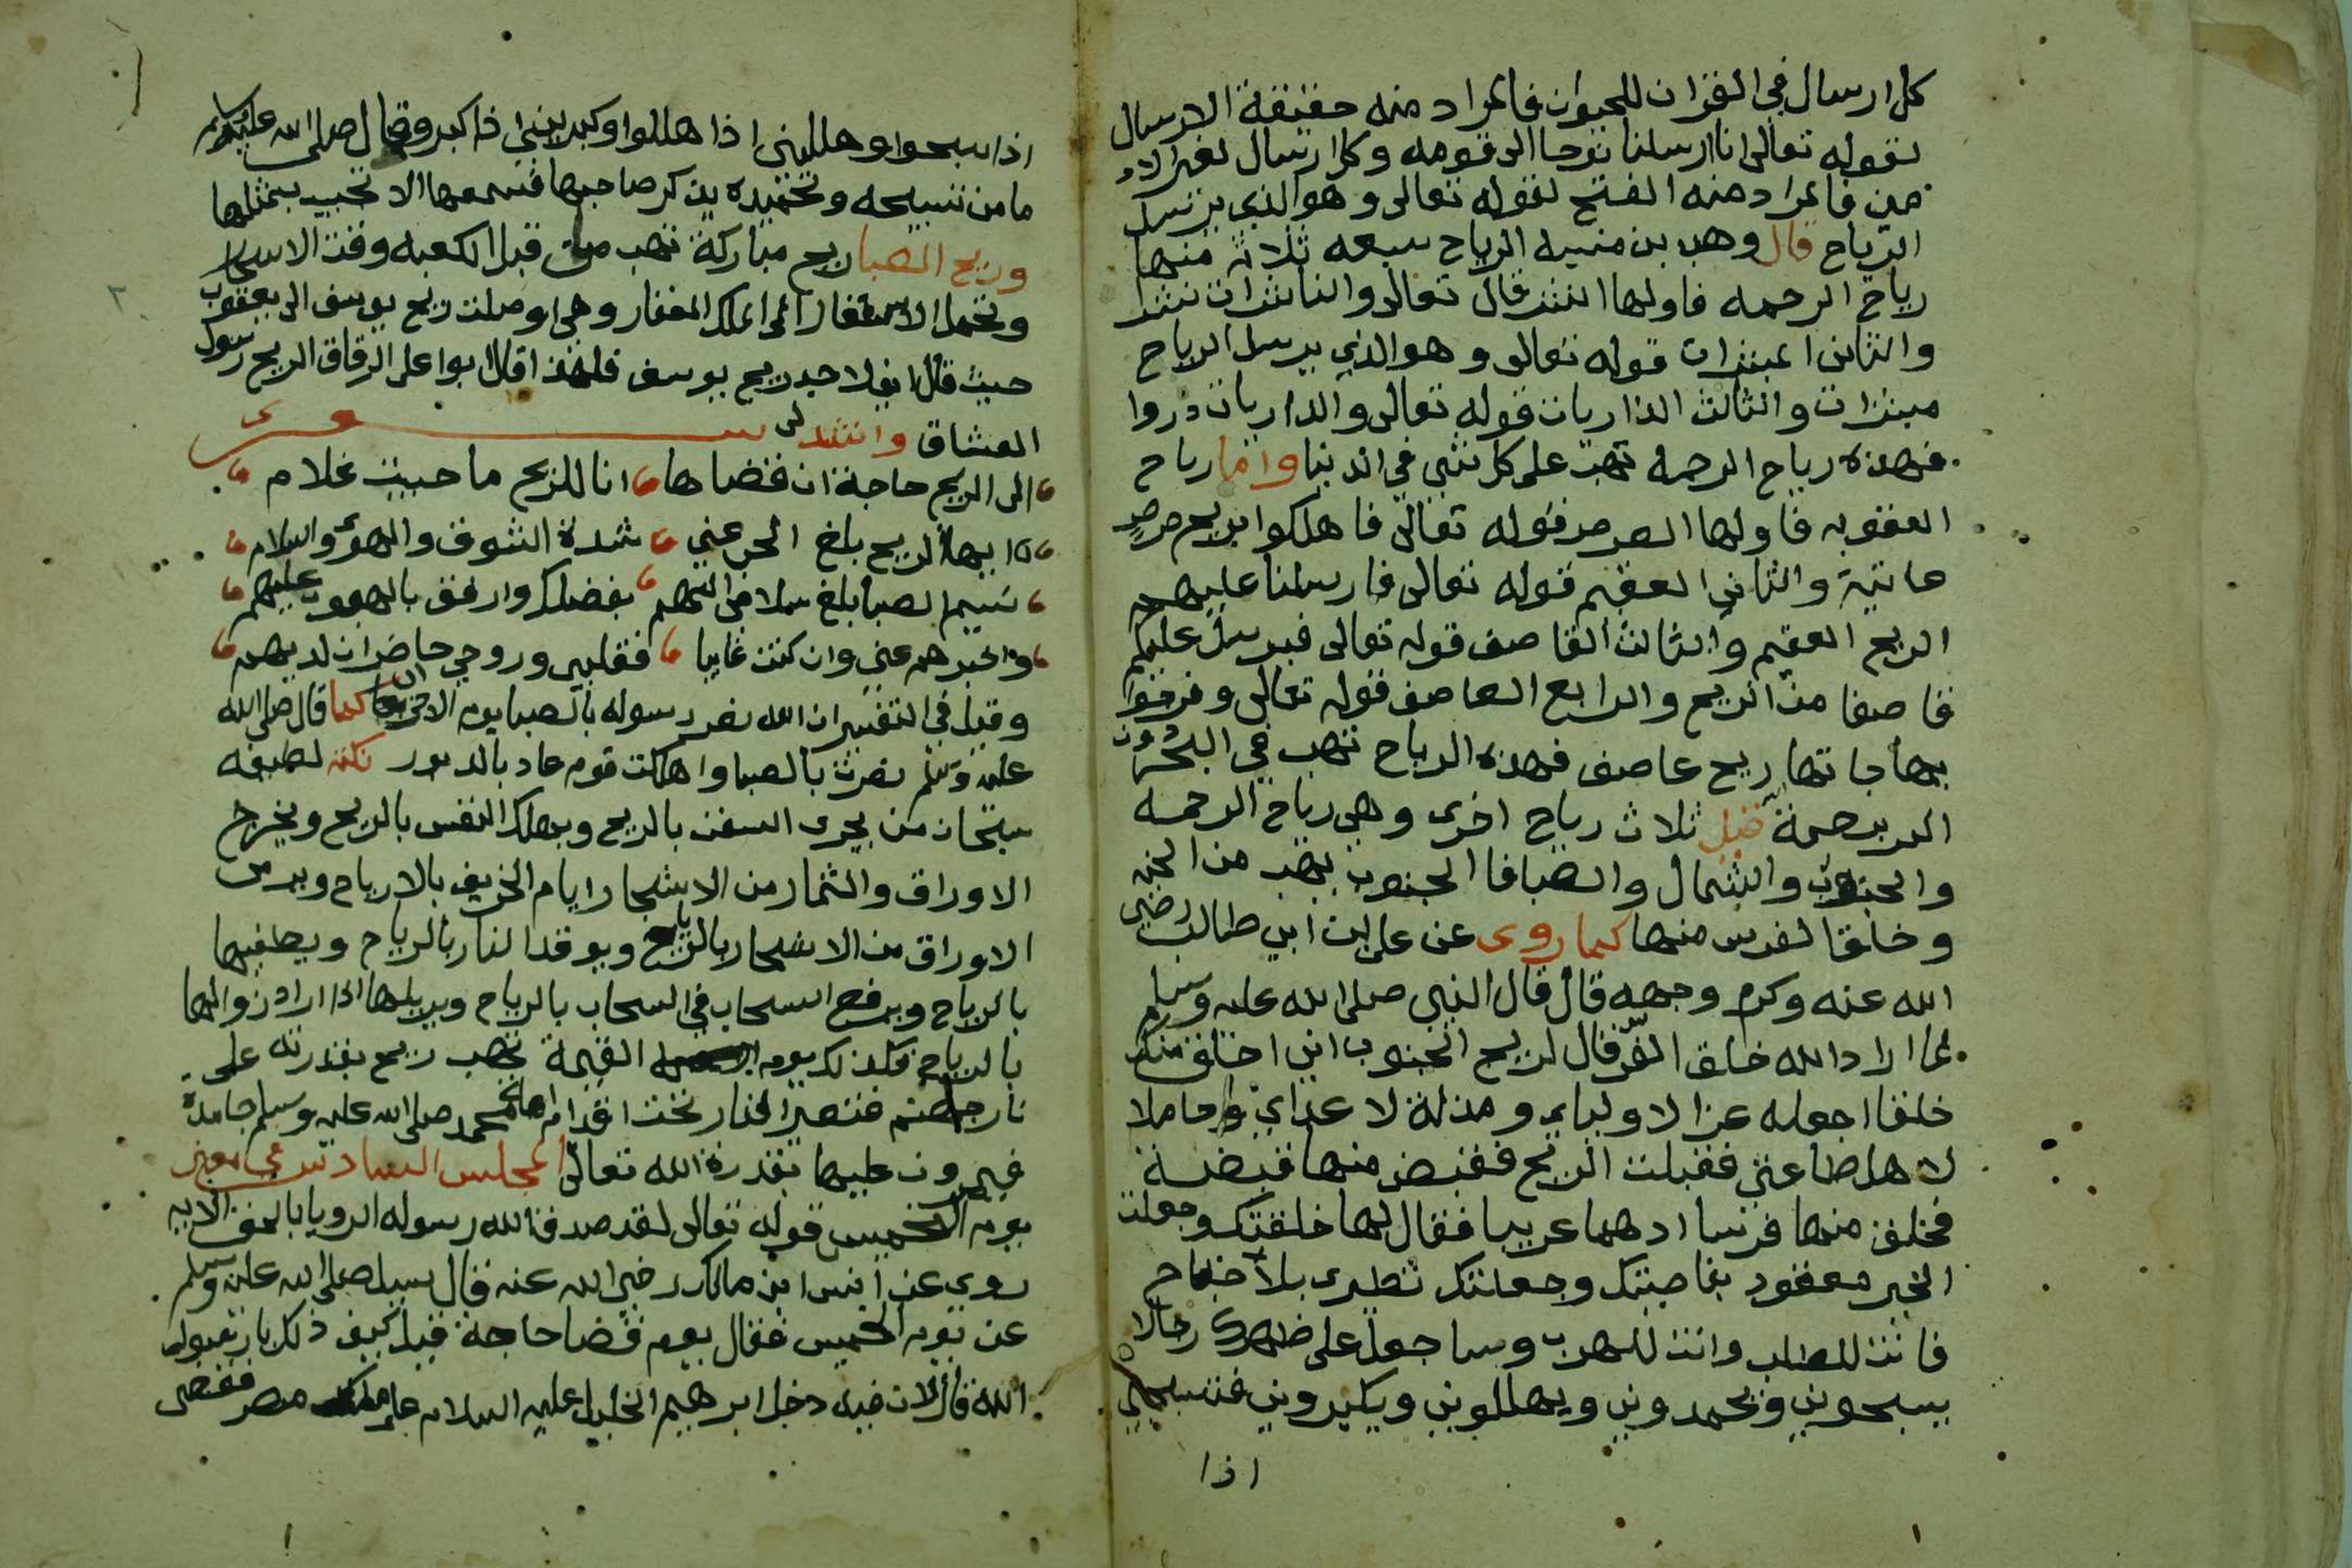 كل ارسال في القران للحيوان فالمراد منه حقيقة الارسال
لقوله تعالى انا ارسلنا نوحا الى قومه وكل ارسال لغير الاد
مين فالمراد منه الفتح لقوله تعالى وهو الذي يرسل
الرياح قال وهب بن منبه الرياح سبعه ثلاثة منها
رياح الرحمه فاولها النشر قال تعالى والناشرات نشرا
والثاني المبشرات قوله تعالى وهو الذي يرسل الرياح
مبشرات والثالث الذاريات قوله تعالى والذاريات ذروا
فهذه رياح الرحمه تهب على كل شي في الدنيا واما رياح
العقوبه فاولها الصرصر قوله تعالى فاهلكوا بريح صرصر
عاتية والثاني العقيم قوله تعالى فارسلنا عليهم
الريح العقيم والثالث القاصف قوله تعالى فيرسل عليكم
قاصفا من الريح والرابع العاصف قوله تعالى وفرحوا
بها جاتها ريح عاصف فهذه الرياح تهب في البحر دون
البر برحمة قيل ثلاث رياح اخرى وهي رياح الرحمه
والجنوب والشمال والصبا فا الجنوب يهب من الجنه
وخلق الفرس منها كما روى عن علي بن ابي طالب رضي
الله عنه وكرم وجهه قال قال النبي صلى الله عليه وسلم
لما اراد الله خلق الفر قال لريح الجنوب اني اخلق منك
خلقا اجعله عزا لاوليايي ومذلة لاعدايي وحاملا
لاهل طاعتي فقبلت الريح فقبض منها قبضة
فخلق منها فرسا ادهما عربيا فقال لها خلقتك وجعلت
الخير معقود بناصيتك وجعلتك تطيري بلا جناح
فانت للطلب وانت للهرب وساجعل على ظهرك رجالا
يسبحوني ويحمدوني ويهللوني ويكبروني فتسبحيني
اذا
اذا سبحوا وهلليني اذا هللوا وكبريني اذا كبر وقال صلى الله عليه وسلم
ما من تسبيحه وتحميده يذكر صاحبها فتسمعها الا تجيب بمثلها
وريح الصبا ريح مباركة تهب من قبل الكعبه وقت الاسحار
وتحمل الاستغفار الى الملك الغفار وهي اوصلت ريح يوسف الى يعقوب
حيث قال اني لاجد ريح يوسف فلهذا قال ابو على الرقاق الريح رسول
العشاق وانشد لى شعرى
الى الريح حاجة ان قضاها انا للريح ما حييت غلام
ايها الريح بلغ الحي عني شدة الشوق والهوى والسلام
نسيم الصبا بلغ سلامي اليهم بفضلك وارفق بالهبوب عليهم
واخبرهم عني وان كنت غايبا فقلبي وروحي حاضران لديهم
وقيل في التفسير ان الله نصر رسوله بالصبا يوم الاحزاب كما قال صلى الله
عليه وسلم نصرت بالصبا واهلكت قوم عاد بالدبور نكته لطيفه
سبحان من يجرى السفن بالريح ويهلك النفس بالريح ويخرج
الاوراق والثمار من الاشجار ايام الخريف بالارياح ويرمى
الاوراق من الاشجار بالرياح ويوقد النار بالرياح ويطفيها
بالرياح ويرفع السحاب في السحاب بالرياح ويزيلها اذا اراد زوالها
بالرياح فكذلك يوم القيمة تهب ريح بقدرته على
نار جهنم فتصير النار تحت اقدام امة محمد صلى الله عليه وسلم جامدة
فيمرون عليها بقدرة الله تعالى المجلس السادس في
يوم الخميس قوله تعالى لقد صدق الله رسوله الرويا بالحق الايه
روي عن انس ابن مالك رضي الله عنه قال سيل صلى الله عليه وسلم
عن يوم الخميس فقال يوم قضا حاجة قيل كيف ذلك يا رسول
الله قال لان فيه دخل ابرهيم الخليل عليه السلام على ملك مصر فقضى